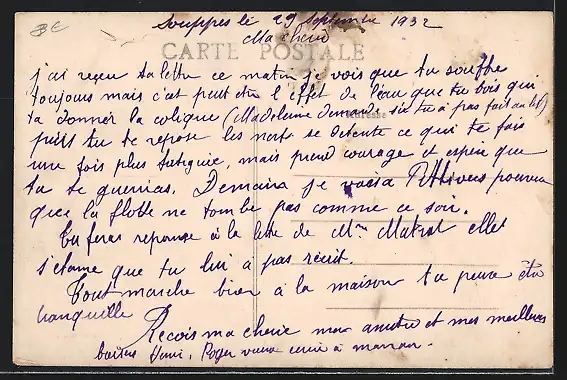 Souppes le 29 Septembre 1932
Ma cherie
CARTE POSTALE
j'ai reçeu ta lettre ce matin je vois que tu souffre
toujours mais c'est peut etre l'effet de l'eau que tu bois qui
ta donner la colique (Madeleine demande si tu a pas fait au lit)
puis tu te repose les nerfs se detente ce qui te fais
une fois plus fatiguée, mais prend courage et espere que
tu te gueriras. Demain je vais a Pithiviers pourvu
que la flotte ne tombe pas comme ce soir.
Tu feras reponse à la lettre de Mme ellet
s'etonne que tu lui a pas récrit.
Tout marche bien à la maison tu peux etre
tranquille
Recois ma cherie mon amitié et mes meilleurs
baisers Roger maman.